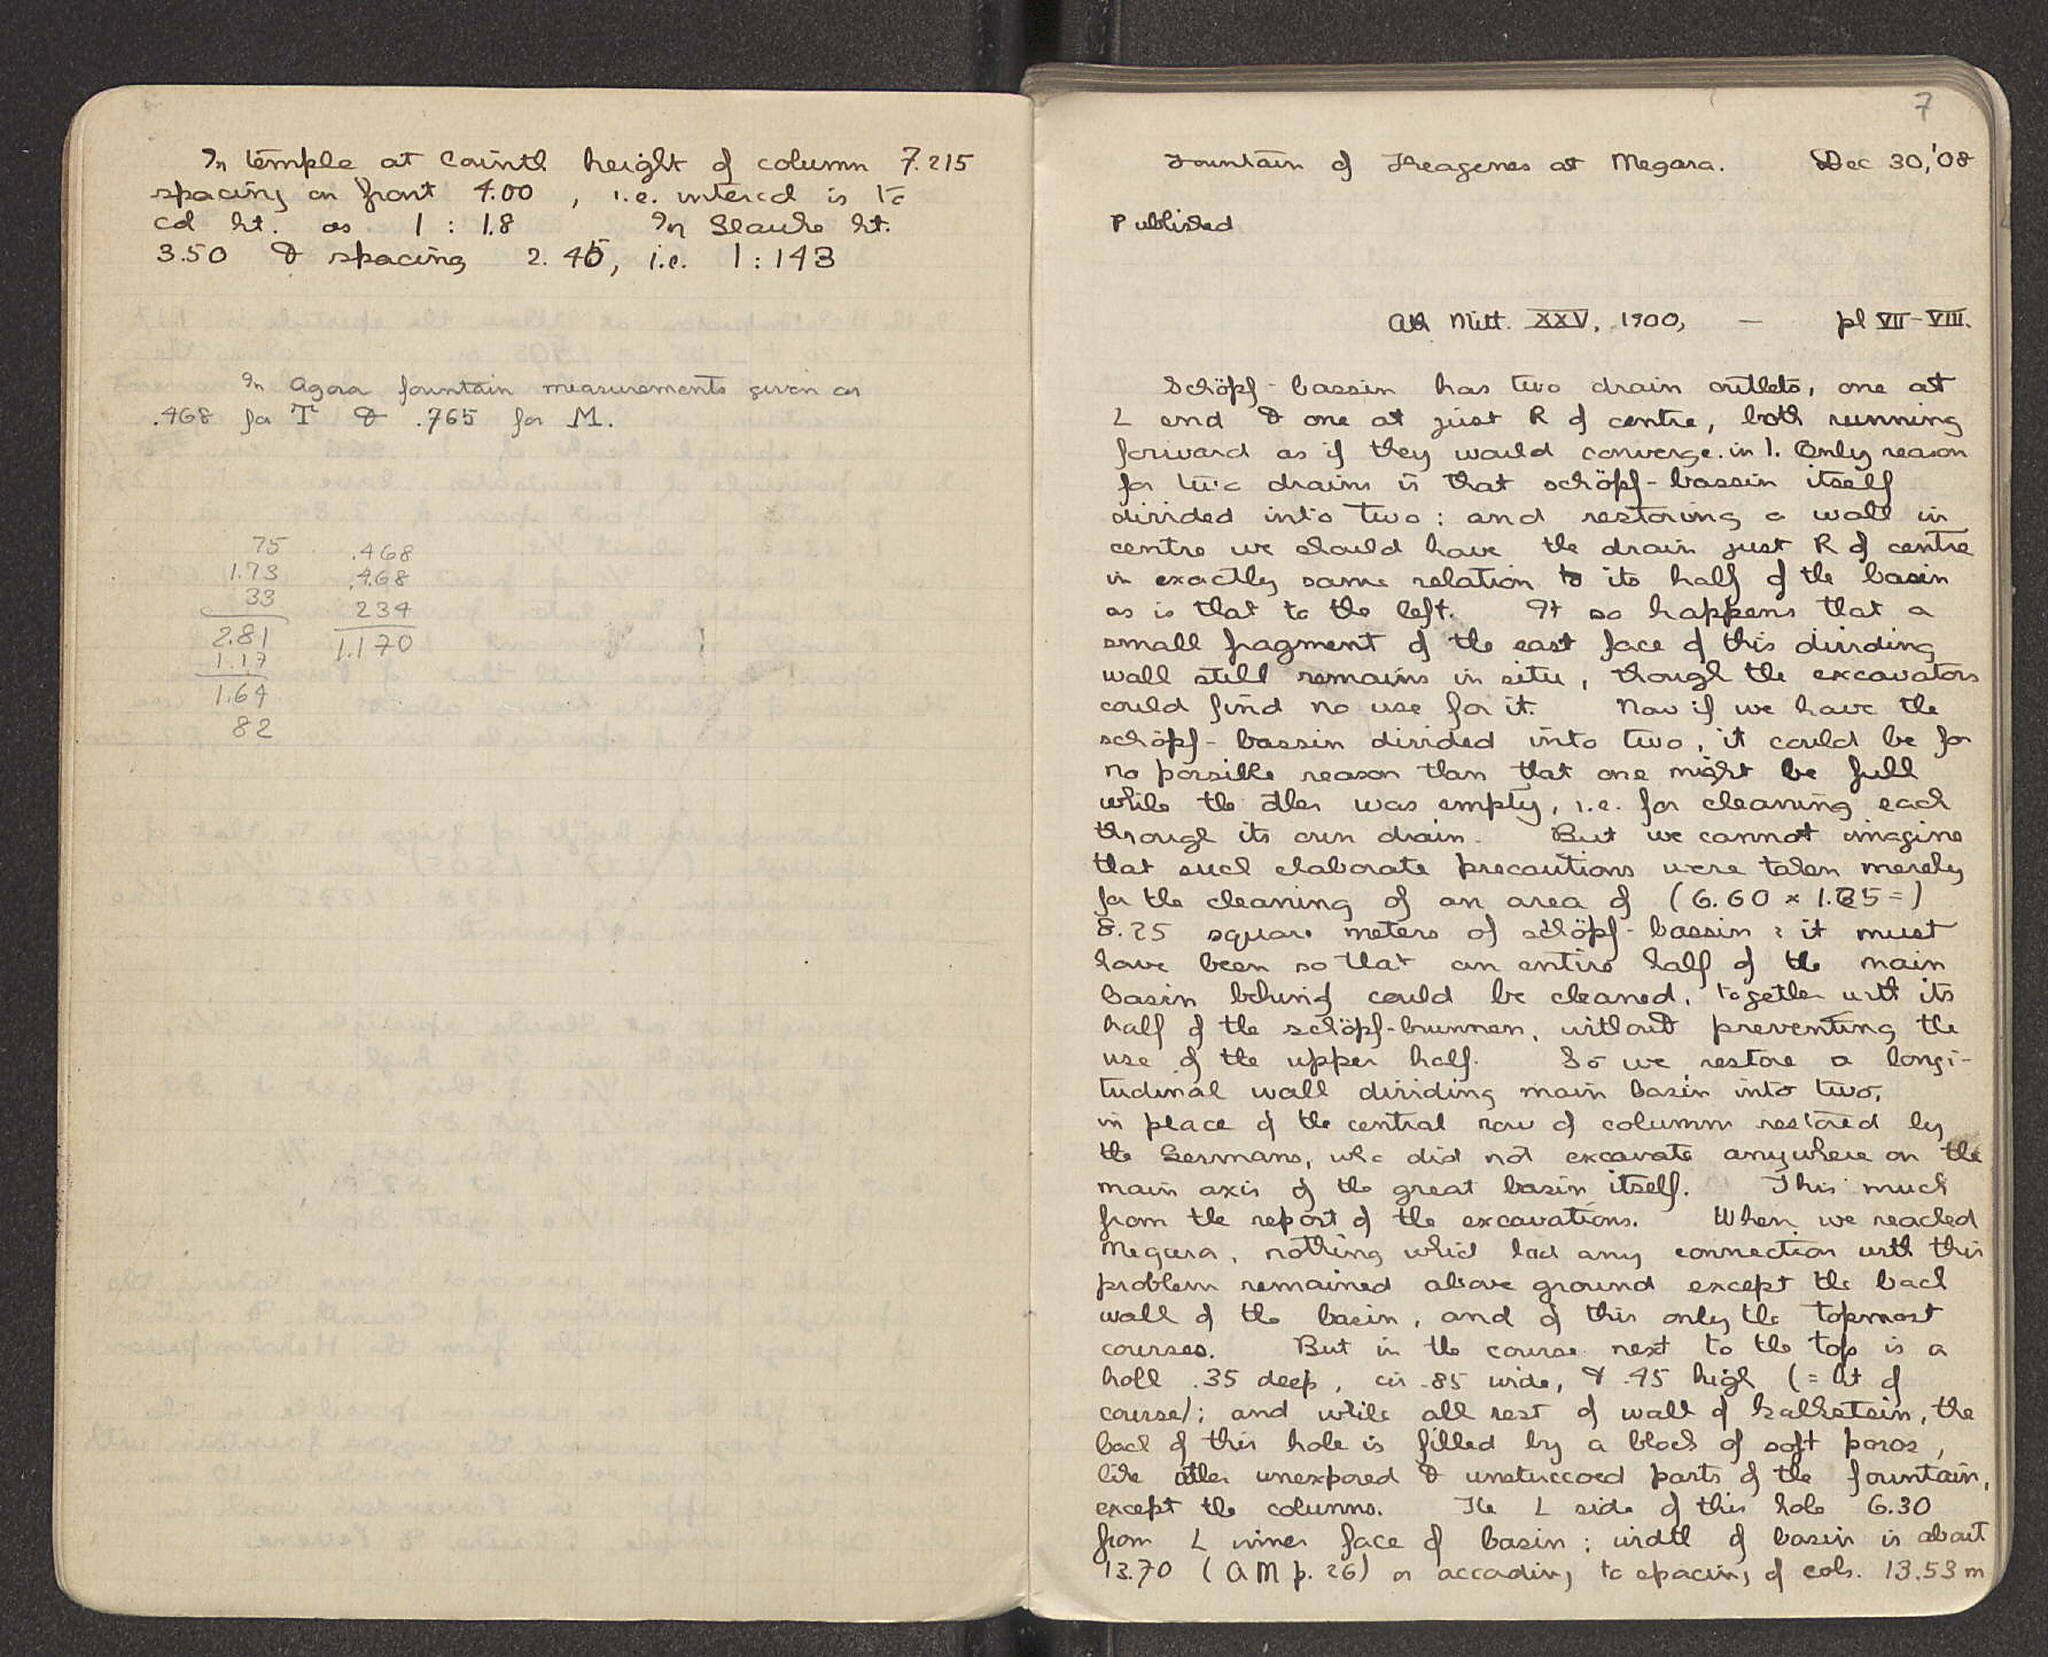 In temple at Corinth height of column 7.215
spacing on front 4.00, i.e. intercol is to
col ht. as 1 : 1.8 In Glauke ht.
3.50 & spacing 2.45, i.e. 1 : 143
In Agora fountain measurements given as
.468 for T & .765 for M.
75
1.73
33
2.81
1.17
1.64
82
.468
.468
234
1.170
7
Fountain of Theagenes at Megara. Dec 30, '08
Published
Ath Mitt. XXV, 1900, — pl VII-VIII.
Schöpf-bassin has two drain outlets, one at
L end & one at just R of centre, both running
forward as if they would converge in 1. Only reason
for two drains is that schöpf-bassin itself
divided into two : and restoring a wall in
centre we should have the drain just R of centre
in exactly same relation to its half of the basin
as is that to the left. It so happens that a
small fragment of the east face of this dividing
wall still remains in situ, though the excavators
could find no use for it. Now if we have the
schöpf-bassin divided into two, it could be for
no possible reason than that one might be full
while the other was empty, i.e. for cleaning each
through its own drain. But we cannot imagine
that such elaborate precautions were taken merely
for the cleaning of an area of (6.60 × 1.25 =)
8.25 square meters of schöpf-bassin : it must
have been so that an entire half of the main
basin behind could be cleaned, together with its
half of the schöpf-brunnen, without preventing the
use of the upper half. So we restore a longi-
tudinal wall dividing main basin into two,
in place of the central row of columns restored by
the Germans, who did not excavate anywhere on the
main axis of the great basin itself. This much
from the report of the excavations. When we reached
Megara, nothing which had any connection with this
problem remained above ground except the back
wall of the basin, and of this only the topmost
courses. But in the course next to the top is a
holl .35 deep, cir .85 wide, & .45 high (= ht of
course); and while all rest of wall of kalkstein, the
back of this hole is filled by a block of soft poros,
like other unexposed & unstuccoed parts of the fountain,
except the columns. The L side of this hole 6.30
from L inner face of basin ; width of basin is about
13.70 (AM p. 26) or according to spacing of cols. 13.53 m